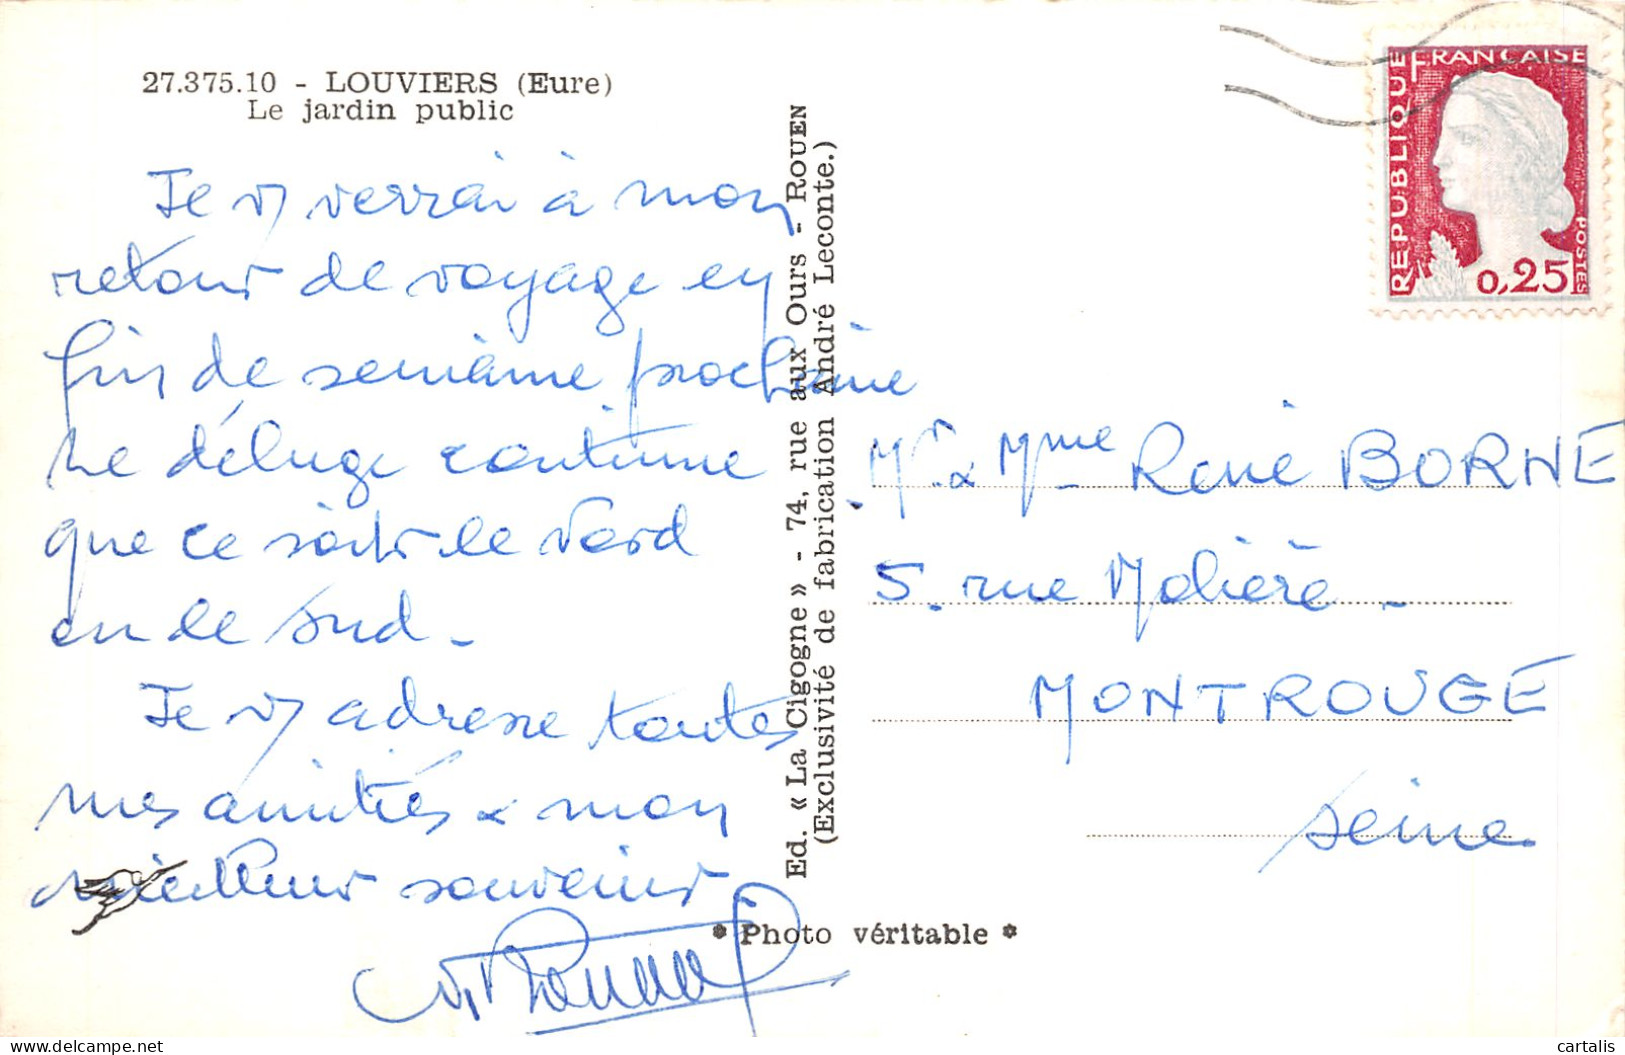 27.375.10 - LOUVIERS (Eure)
Le jardin public
Je vs verrai à mon
retour de voyage en
fin de semaine prochaine
Le déluge continue
que ce soit le Nord
ou le Sud -
Je vs adresse toutes
mes amitiés & mon
meilleur souvenir
Ed. « La Cigogne » - 74, rue aux Ours - ROUEN
(Exclusivité de fabrication André Leconte.)
* Photo véritable *
REPUBLIQUE FRANÇAISE
POSTES
0,25
Mr & Mme René BORNE
5. rue Molière -
MONTROUGE
Seine
delcampe.net
cartalis